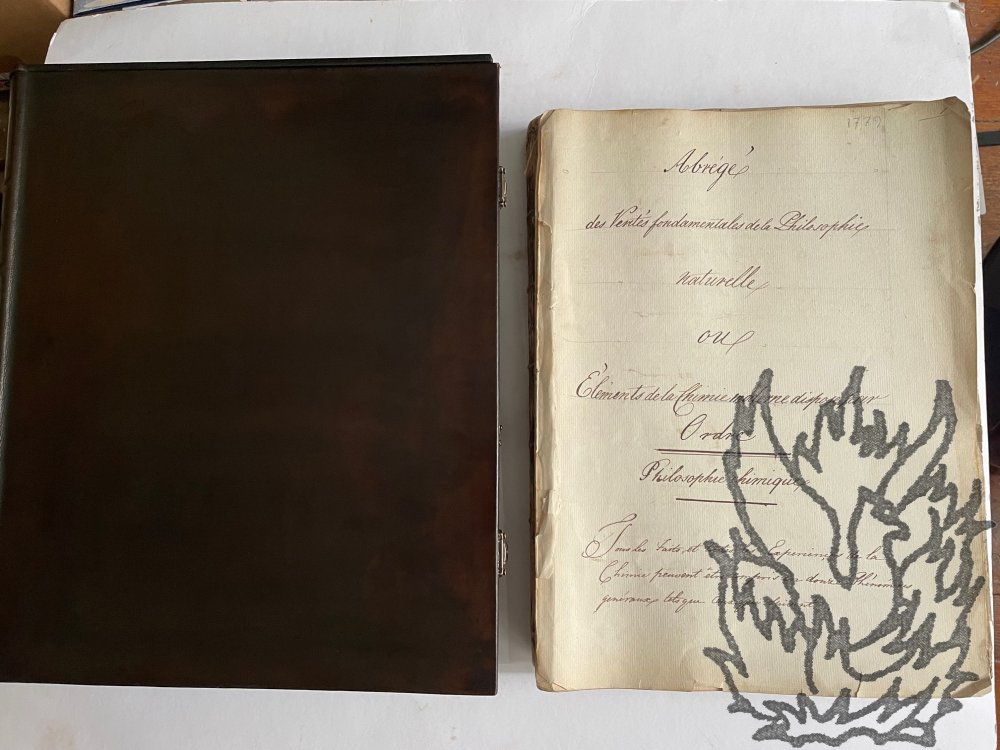 1779
Abrégé
des Verités fondamentales de la Philosophie
naturelle
ou
Éléments de la Chimie moderne disposé sur
Ordre
Philosophie chimique
Tous les faits, et Expériences de la
Chimie peuvent être en douze Phénomènes
généraux tels que